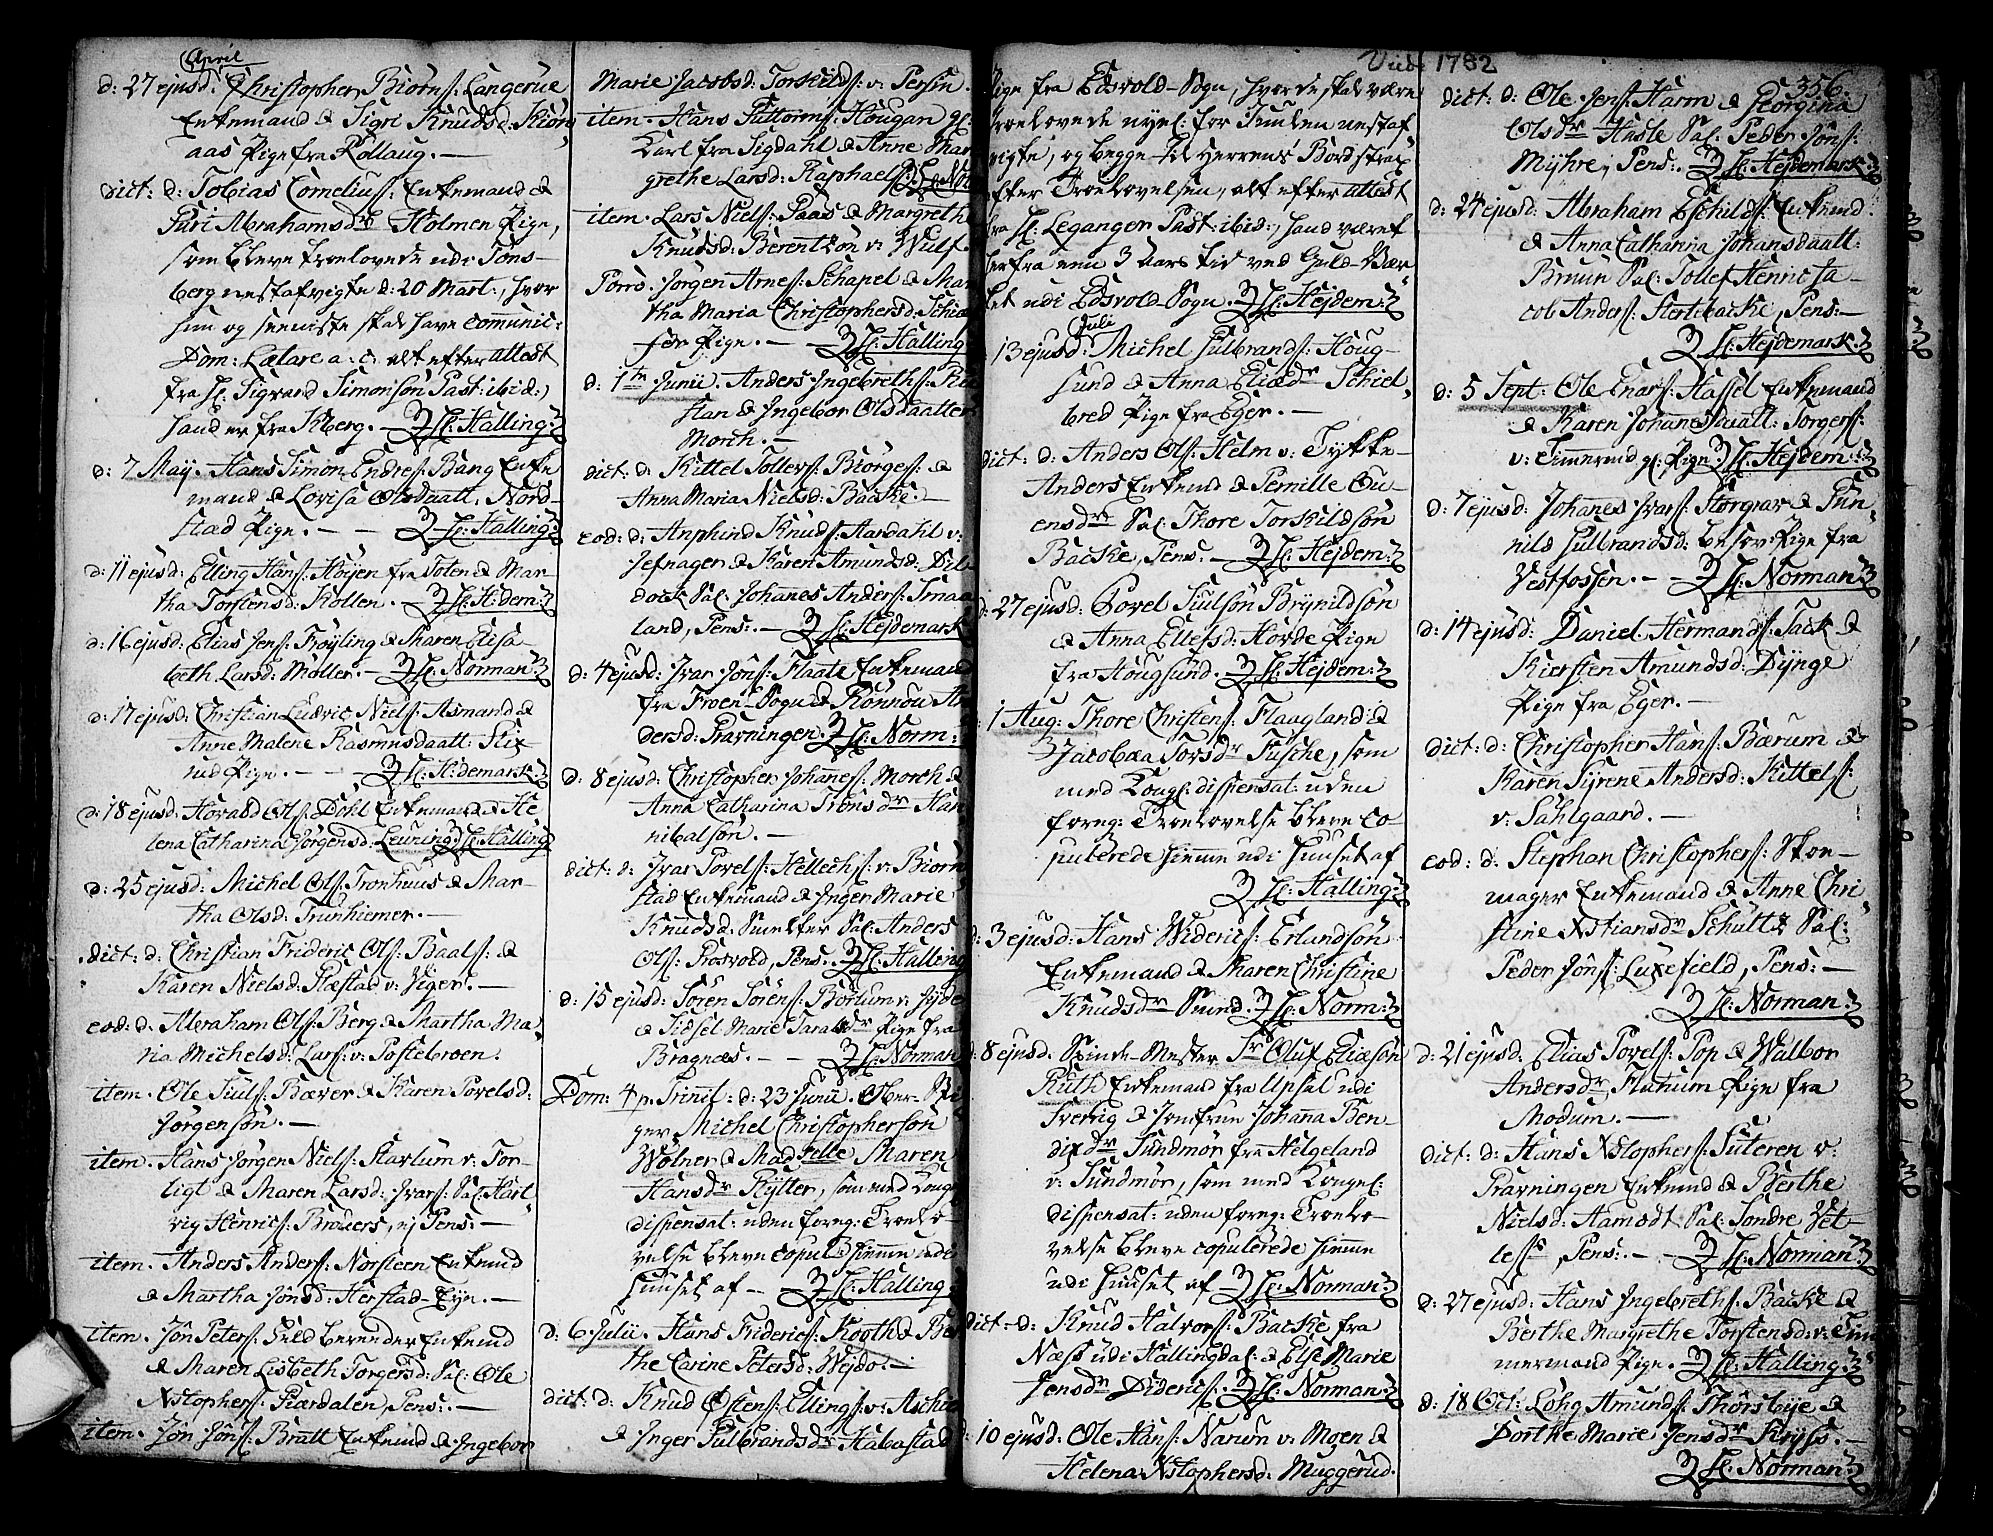 April
d: 27 ejusd: Christopher Biörns: Langerüe
Enkemand & Sigri Knudsd: Kiön
aas Pige fra Rollaug. —
dict: d: Tobias Cornelius: Enkemand &
Püri Abrahamsdr Holmen Pige,
som bleve troelovede udi Töns-
berg nestafvigte d: 20 Mart:, hvor
hun og seeniste skal have com̄unic:
Dom: Lætare a: c: alt efter attest
fra H: Sigvard Simonsön Past: ibid:,
hand er fra Kberg. — H: Halling
d: 7 Maij. Hans Simon Endres: Bang Enke
mand & Lovisa Olsdaatt: Nord-
stad Pige. — — H: Halling
d: 11 ejusd: Elling Hans: Höijen fra Toten & Mar-
tha Torstensd: Kollen. — H: H:dem:
d: 16 ejusd: Elias Jens: Fröyling & Maren Elisa
beth Larsd: Möller. — H: Norman
d: 17 ejusd: Christian Ludvic Niels: Asmand &
Anne Malene Rasmusdaatt: Stix
rud Pige. — — H: H:demark
d: 18 ejusd: Hovald Ols: Dohl Enkemand & He
lena Catharina Jörgensd: Leuning: H: Halling
d: 25 ejusd: Michel Ols: Tronhuus & Mar-
tha Olsd: Trunhiemer. —
dict: d: Christian Frideric Ols: Baals: &
Karen Nielsd: Næstad v: Jiger. —
eod: d: Abraham Ols: Berg & Martha Ma-
ria Michelsd: Lars: v: Postebroen:
item. Ole Juuls: Bæver & Karen Povelsd:
Jörgensön. —
item. Hans Jörgen Niels: Starlum v: Tor-
ligt & Maren Larsd: Ivars: Sal: Hart
vig Henrics: Bröuers, ej Pens: —
item. Anders Anders: Norsteen Enkmd
& Martha Jönsd: Herstad-Eije. —
item. Jön Peters: Feldberender Enkemd
& Maren Lisbeth Torgersd: Sal: Ole
Xstophers: Fiærdalen, Pens: —
item. Jön Jöns: Bratt Enkemd & Ingebor
Marie Jacobsd: Torskilds: v: Persin.
item. Hans Guttorms: Hougan gl:
Karl fra Sigdahl & Anne Mar
grethe Larsd: Raphaels: H: No
item. Lars Niels: Paas & Margreth
Knudsd: Berentsön v: Wulf
Porro. Jörgen Arnes: Schapel & Mar
tha Maria Christophersd: Schio
för Pige. — H: Halling
d: 1te Junii. Anders Ingebreths: Rin
stan & Ingebor Olsdaatter
Morch. —
dict: d: Kittel Tollefs: Biörges: &
Anna Maria Nielsd: Backe. —
eod: d: Anphind Knuds: Aardahl v:
Jefnager & Karen Amundsd: Dil
dock Sal: Johanes Anders: Smaa
land, Pens: — H: Hejdemark
d: 4 ejusd: Ivar Jöns: Flaate Enkemand
fra Froen-Sogn & Rönnou An
dersd: Pravningen: H: Norm:
d: 8 ejusd: Christopher Johannes: Morch &
Anna Catharina Tronsdr Han
nibalsön. —
dict: d: Ivar Povels: Hellechs: v: Biörn
stad Enkemand & Inger Marie
Knudsd: Smelter Sal: Anders
Ols: Prosvold, Pens. H: Halling
d: 15 ejusd: Sören Sörens: Börtum v: Jÿde
& Sidsel Marie Taralsdr Pige fra
Bragnæs. — — H: Norman
Dom: 4 p: Trinit: d: 23 Junii. Ober-Sti
ger Michel Christophersön
Wölner & Madselle Maren
Hansdr Stÿtter, som med Konge
dispensat: uden foreg: Troelo-
velse bleve copul: hieme udi
huuset af — H: Halling
d: 6 Julii. Hans Friderics: Kooth & Ber
the Carine Petersd: Wejdo. —
dict: d: Knud Östens: Ellings: v: Aschie
& Inger Gulbrandsdr Habastad
Vide 1782
Pige fra Edsvold-Sogn, hvor de skal være
troelovede nyel: for Juulen nestaf
vigte, og begge til Herrens Bord strax
efter Troelovelsen, alt efter attest
fra H: Leganger Past: ibid:, hand været
herfra nem 3 aars tid ved Guld-Vær
ket udi Edsvold-Sogn. H: Hejdem:
Juli
13 ejusd: Michel Gulbrands: Houg-
sund & Anna Eliædr Schiel
bred Pige fra Eger. —
dict: d: Anders Ols: Helm v: Tykke-
Anders Enkemd & Pernille Ou-
ensdr Sal: Thore Torskildsön
Backe, Pens: — H: Hejdem:
d: 27 ejusd: Povel Juulsön Brynildsön
& Anna Ellefsd: Hörde Pige
fra Hougsund. H: Hejdem:
1 Aug: Thore Christens: Flaagland &
Jacobæa Torsdr Fusche, som
med Kongl: dispensat: uden
foreg: Troelovelse bleve co-
pulerede hieme udi huuset af
H: Halling
d: 3 ejusd: Hans Widerics: Erlandsön
Enkemand & Maren Christine
Knüdsdr Smed. H: Norm:
d: 8 ejusd: Skinde-Mester Sr Oluf Eliæsön
Ruth Enkemand fra Upsal udi
Sverrig & Jomfrue Johanna Ben-
dixdr Sundmör fra Helgeland
v: Sundmör, som med Kongel:
dispensat: uden foreg: Troelo-
velse bleve copulerede hieme
udi huuset af H: Norman
dict: d: Knud Halvors: Backe fra
Næss udi Hallingdal & Else Marie
Jensdr Diderics: H: Norman
d: 10 ejusd: Ole Hans: Narum v: Moen &
Helena Xstophersd: Muggerud.
356.
dict: d: Ole Jens: Harm & Georgina
Olsdr Hasle Sal: Peder Jöns:
Mÿhre, Pens: H: Hejdemark
d: 24 ejusd: Abraham Eschilds: Enkemd
& Anna Catharina Johansdaatt:
Bruun Sal: Tollef Henric Ja-
cob Anders: Stertebacke, Pens: —
H: Hejdemark
d: 5 Sept: Ole Enars: Hassel Enkemand
& Karen Johanesdaatt: Torgers:
v: Timmerud gl: Pige: H: Hejdem:
d: 7 ejusd: Johanes Ivars: Storgrav & Gun-
nild Gulbrandsd: besov: Pige fra
Vestfossen. — H: Norman
d: 14 ejusd: Daniel Hermands: Sack &
Kiersten Amundsd: Dynge
Pige fra Eger. —
dict: d: Christopher Hans: Bærum &
Karen Syrene Andersd: Kittels:
v: Sahlgaard. —
eod: d: Stephan Christophers: Skoe-
mager Enkemand & Anne Chri
stine Xstiansdr Schultz Sal:
Peder Jöns: Luxefield, Pens: —
H: Norman
d: 21 ejusd: Elias Povels: Pop & Walbor
Andersdr Flatum Pige fra
Modum. —
dict: d: Hans Xstophers: Suteren v:
Pravningen Enkemd & Berthe
Nielsd: Aamodt Sal: Sondre Vet-
less, Pens: — H: Norman
d: 27 ejusd: Hans Ingebreths: Backe &
Berthe Margrethe Torstensd: v: Tim
mermand Pige. H: Halling
d: 18 Oct: Löhg Amunds: Thorsbye &
Dorthe Marie Jensdr Krÿss. —
H: Norman